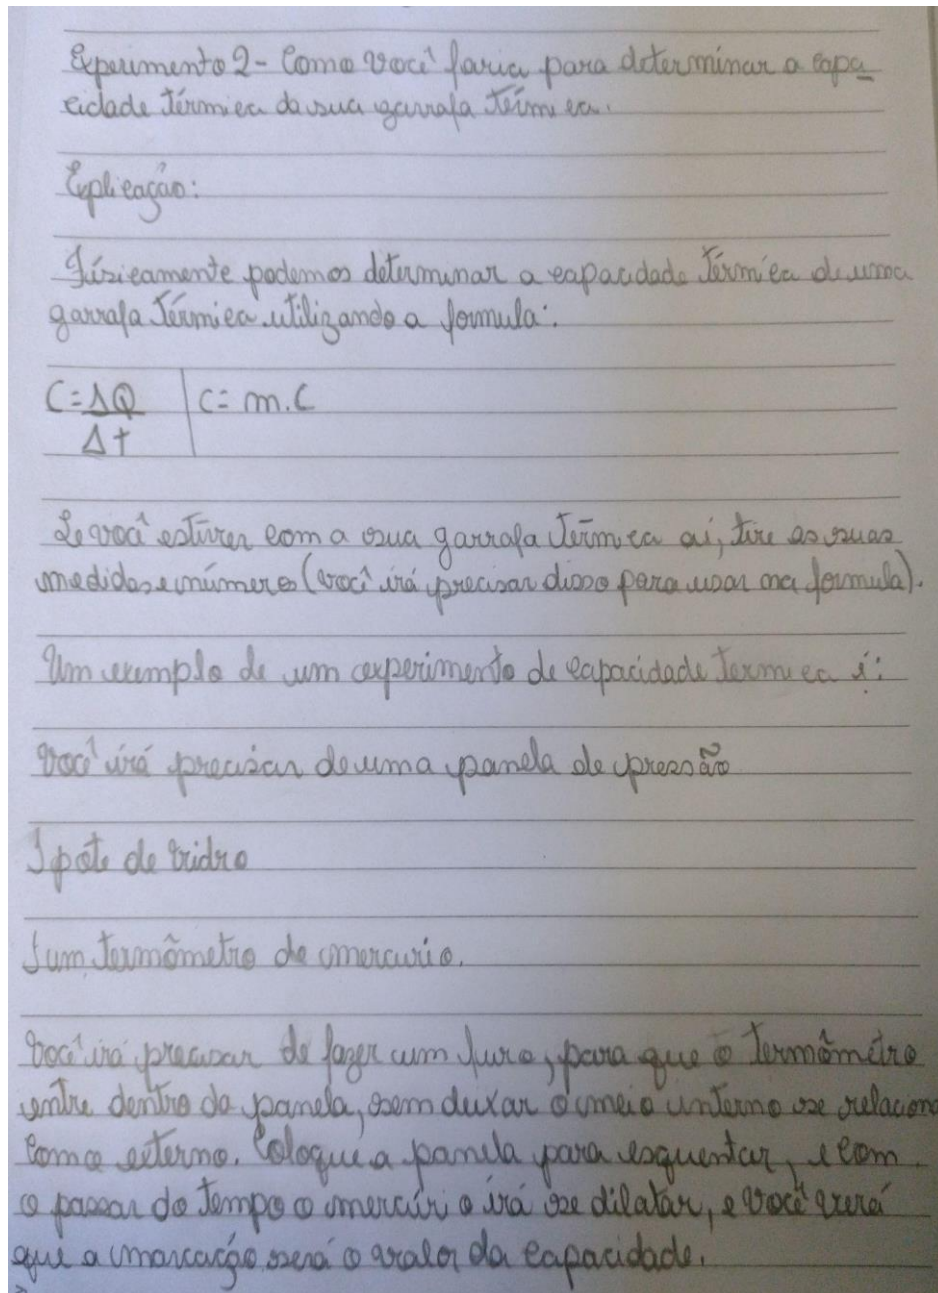 Experimento 2 - Como você faria para determinar a capa
cidade térmica da sua garrafa térmica.
Explicação:
Físicamente podemos determinar a capacidade térmica de uma
garrafa térmica utilizando a formula:
C = ΔQ | C = m.C
Δt
Se você estiver com a sua garrafa térmica aí, tire as suas
medidas e números (você irá precisar disso para usar na formula).
Um exemplo de um experimento de capacidade termica é:
Você irá precisar de uma panela de pressão
1 pote de vidro
1 um termômetro de mercurio.
Você irá precisar de fazer um furo, para que o termômetro
entre dentro da panela, sem deixar o meio interno se relacion
com o externo. Coloque a panela para esquentar, e com
o passar do tempo o mercúrio irá se dilatar, e você verá
que a marcação será o valor da capacidade.